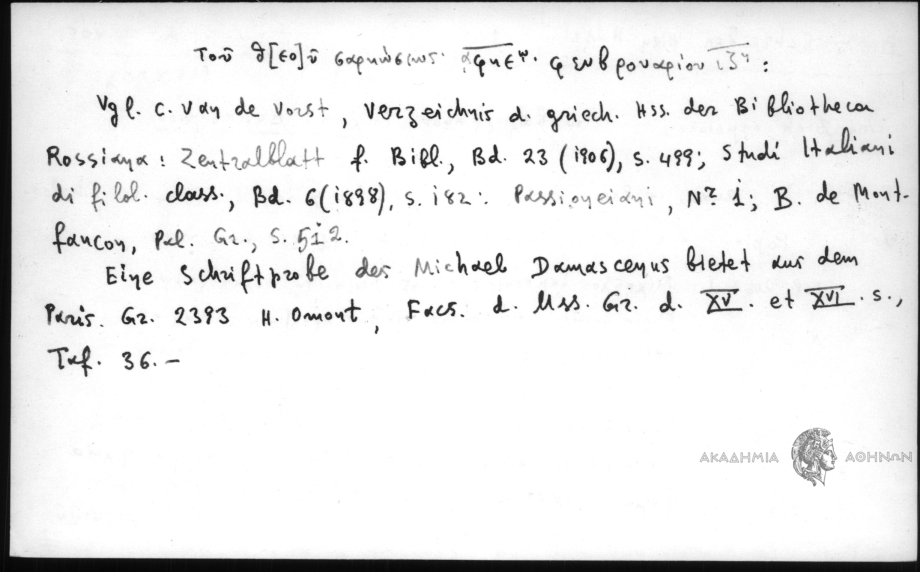 τοῦ θ[εο]ῦ σαρκώσεως· αφνεω· φευβρουαρίου ιζη :
Vgl. C. van de Vorst, Verzeichnis d. griech. Hss. der Bibliotheca
Rossiana: Zentralblatt f. Bibl., Bd. 23 (1906), S. 499; Studi Italiani
di filol. class., Bd. 6 (1898), S. 182: Passioneiani, Nr. 1; B. de Mont-
faucon, Pal. Gr., S. 512.
Eine Schriftprobe des Michael Damascenus bietet aus dem
Paris. Gr. 2393 H. Omont, Facs. d. Mss. Gr. d. XV. et XVI. s.,
Taf. 36.—
ΑΚΑΔΗΜΙΑ ΑΘΗΝΩΝ